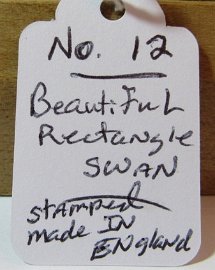 No. 12
BeautiFuL
Rectangle
SWAN
stamped
made IN
ENgland